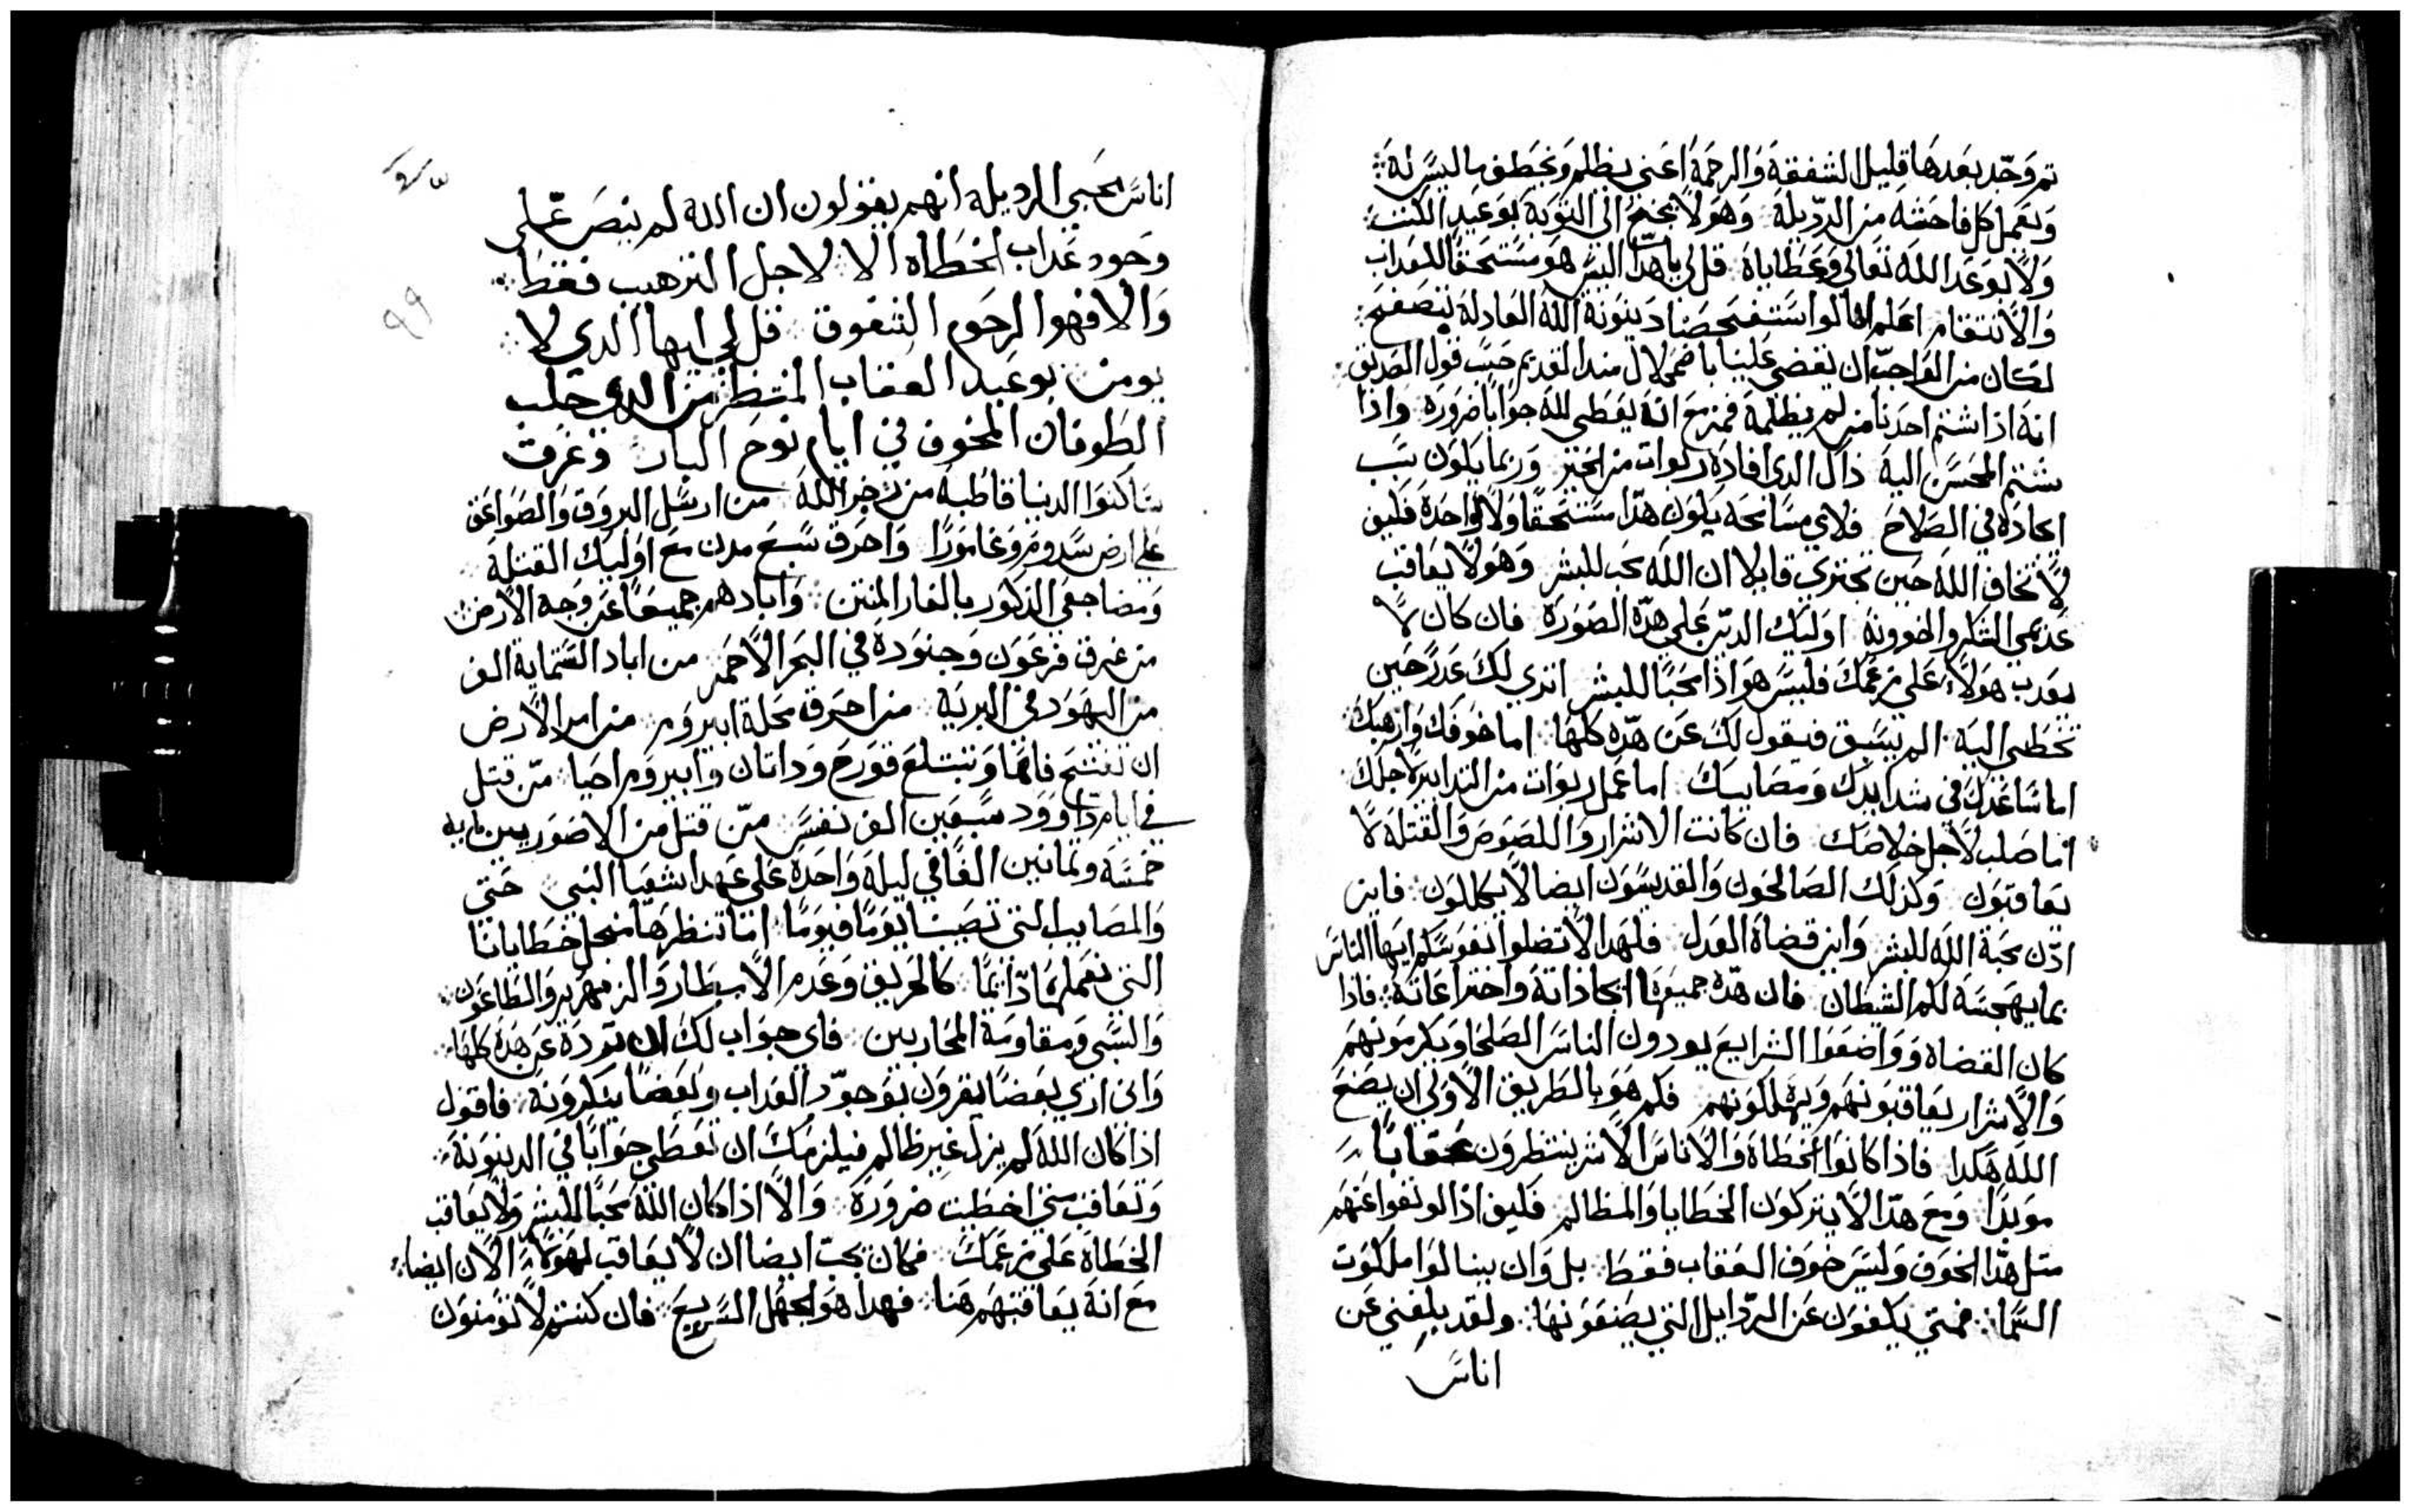 تم وَحّد بعَدهَا قليل الشفقة وَالرحمَة اعَني يظلم وَيخطف ما ليسَ له
وَيعَمل كل فاحشه من الردّيلة وَهوَ لا يجنح الى التوبَة بوَعَيد الكتب
وَلا بوَعَد الله تعَالى وَعَطاياه قل لي يا هدّا اليسَ هوَ مسَتحقا للعَداب
وَالانتقام اعَلم اننا لوا استفحصَنا دَينوَنة الله العَادلة بتصَفح
لكان من الوَاجبّ ان يقضي عَلينا باضمحلال مند القديم حسَب قول الصَديق
انه اذا شتم احَدنا من لم يظلمة فمزمع انه يعَطي لله جوَابا ضروَره وَاذا
شتم المحسَن اليه ذاك الدي افادَه ربوات من الخير وَربما يكوَن سَبب
ايجادَه في الصَلاح فلاي مسَامحه يكوَن هدّا مسَتحقا وَلا وَاحدَة فكيف
لا تخاف الله حَين تجتري قايلا ان الله محَب للبشر وَهوَ لا يعَاقب
عَديمي الشكر والخوونه اوَليك الديّن عَلى هدّه الصَوَرَة فان كان لا
يعَدب هوَلاء عَلى زعمَك فليسَ هوَ اذا محَبا للبشر اتري لكَ عَدر حَين
تخطي اليه الم يسَبق فيقول لكَ عَن هدّه كلهَا اما خوَفك وَارهبَك
اما سَاعَدكَ في شدايدَك وَمصَايبكَ اما عَمل ربوَات من التدابير لاجلكَ
اما صَلب لاجل خلاصَك فان كانت الاشرار وَاللصَوص وَالقتلة لا
يعَاقبَوَن وَكذلك الصَالحَون وَالقديسَوَن ايضا لا يكللوَن فاين
ادّن محَبة الله للبشر وَاين قضاة العَدل فلهَدا لا تضلوا نفوسَكم ايهَا الناسَ
بما يهجسَه لكم الشيطان فان هدّه جميعَها ايجاذاته وَاختراعَاته فاذا
كان القضاه وَوَاضعَوا الشرايع يودون الناسَ الصَلحَا وَيكرمَونهم
وَالاشرار يعَاقبَونهَم وَيهَلكوَنهم فكم هوَ بالطريق الاوَلى ان يصَنع
الله هَكدا فاذا كانوَا الخطاة وَالاناسَ الاشر ينتظرَون عَقابا
موَبدَا وَمع هدّا لا يتركوَن الخطايا وَالمظالم فكيف اذا لو نفوا عَنهَم
متل هدّا الخوَف وَليسَ خوَف العقاب فقط بل وَان ينالوَا ملكوَت
السَما فمتي يكفوَن عَن الردّايل التي يصَنعَوَنهَا ولقد بلغني عَن
اناسَ
اناسَ محَبي الرديله انهم يقولون ان الله لم ينصَ عّلى
وجود عَداب الخطاه الا لاجل الترهيب فقط
وَالا فهوا الرحَوم الشفوق قل لي ايها الدي لا
يومن بوَعَيد العقاب المنتظر من الدي جلب
الطَوفان المخوف في ايام نوح البار وَغرق
سَاكنوَا الدنيا قاطبة من زخر الله من ارسَل البروَق وَالصَوَاعَق
على ارض سَدوم وَغامَورَا وَاحرق سَبع مدن مع اوَليك القتلة
وَمضاجعَي الذكوَر بالغار المنتن وَابادهم جميعَا عَن وَجه الارض
من غرق فرعَوَن وَجنوَدهَ في البحَر الاحَمر من اباد السَتماية الف
من اليهَود في البريَه من احَرق محَلة ابيروَم من امر الارض
ان تفتح فاهَا وَتبتلع قوَرح وَداتان وَابيروَم احَيا مّن قتل
في ايام دَاوَود سَبعَين الف نفسَ مّن قتل من الاصَوَريين مايه
خمسَة وَتمانين الفًا في ليلة وَاحَدة عَلى عَهد اشعَيا النبي حَتى
وَالمصَايب التي تصَيبنا يوَمًا فيوَمًا امَا تنظرهَا من اجل خطايانا
التي نعَملهَا دّايمًا كالحَريق وَعَدم الامطار وَالزمهَرير وَالطاعَون
وَالسَبي وَمقاومَة المحَاربين فاي جوَاب لكَ ان تورَدهَ عَن هدَه كلهَا
وَاني ارَي بعَضا يقروَن بوَجوّد العَداب وبعَضا ينكروَنه فاقول
اذا كان الله لم يزل غير ظالم فيلزمَك ان تعَطي جوَابًا في الدينوَنة
وَتعَاقب متى اخطيت ضروَرَة وَالا اذا كان الله محَبًا للبشر وَلا يعَاقب
الخطاة عَلى زعمَك فكان يجبّ ايضا ان لا يعَاقب لهَوَلاء الان ايضا
مع انه يعَاقبهَم هَنا فهدا هوَ الجهَل السَريع فان كنتم لا توَمنوَن